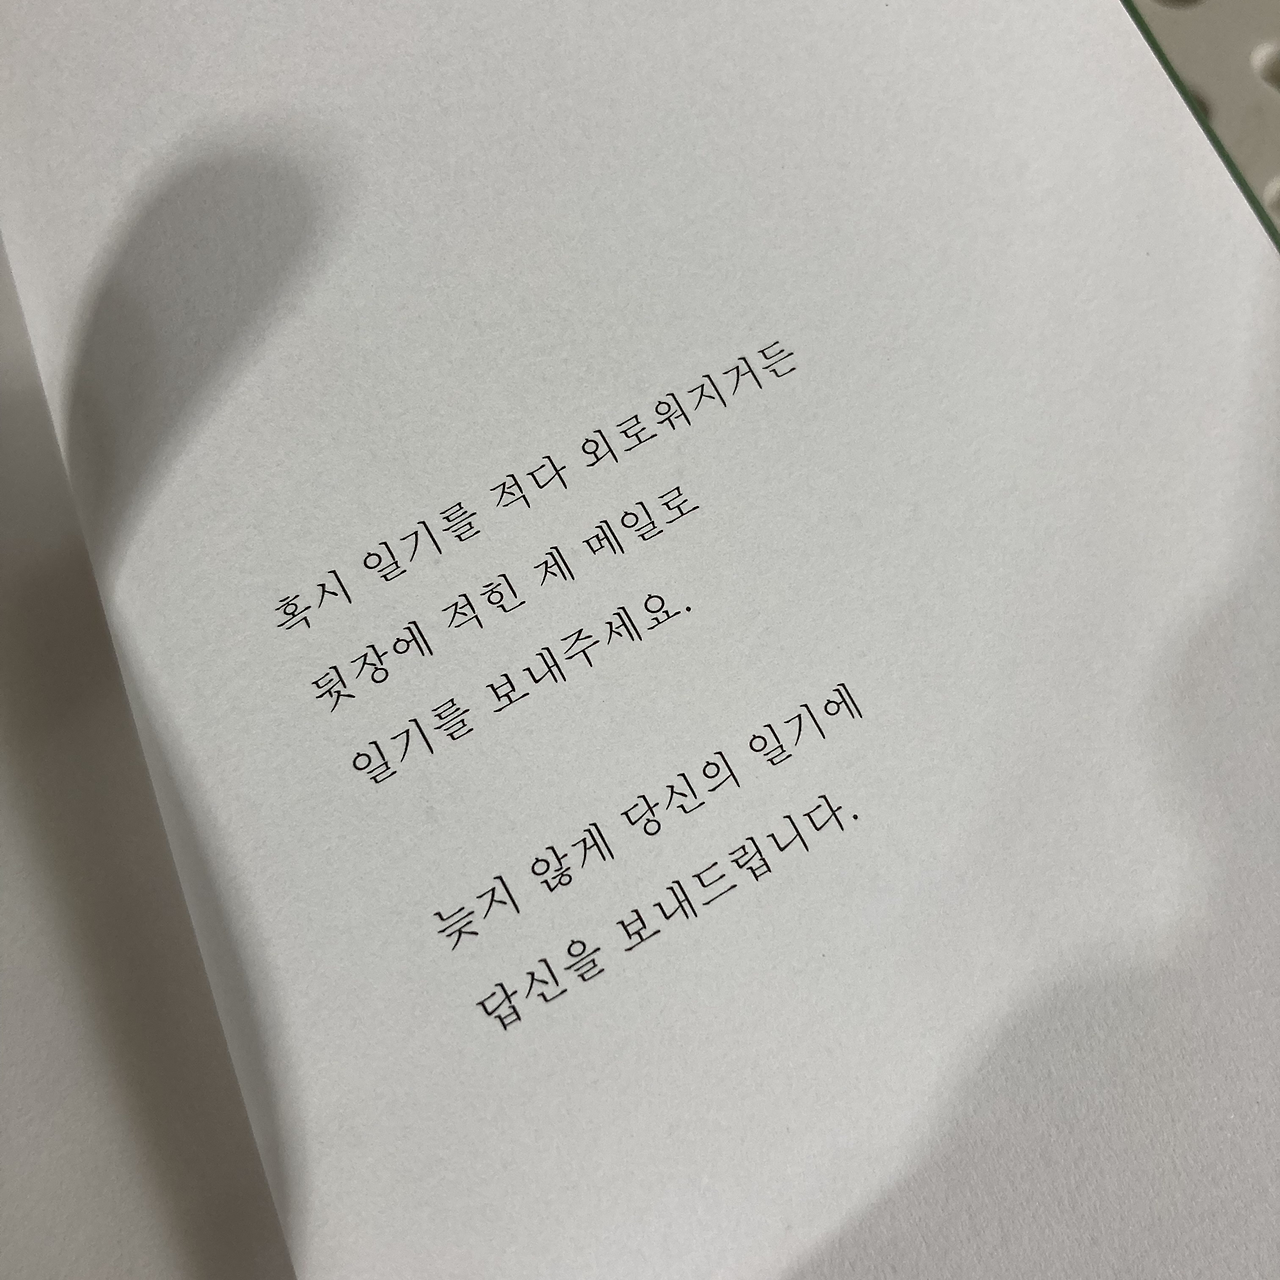 혹시 일기를 적다 외로워지거든
뒷장에 적힌 제 메일로
일기를 보내주세요.
늦지 않게 당신의 일기에
답신을 보내드립니다.